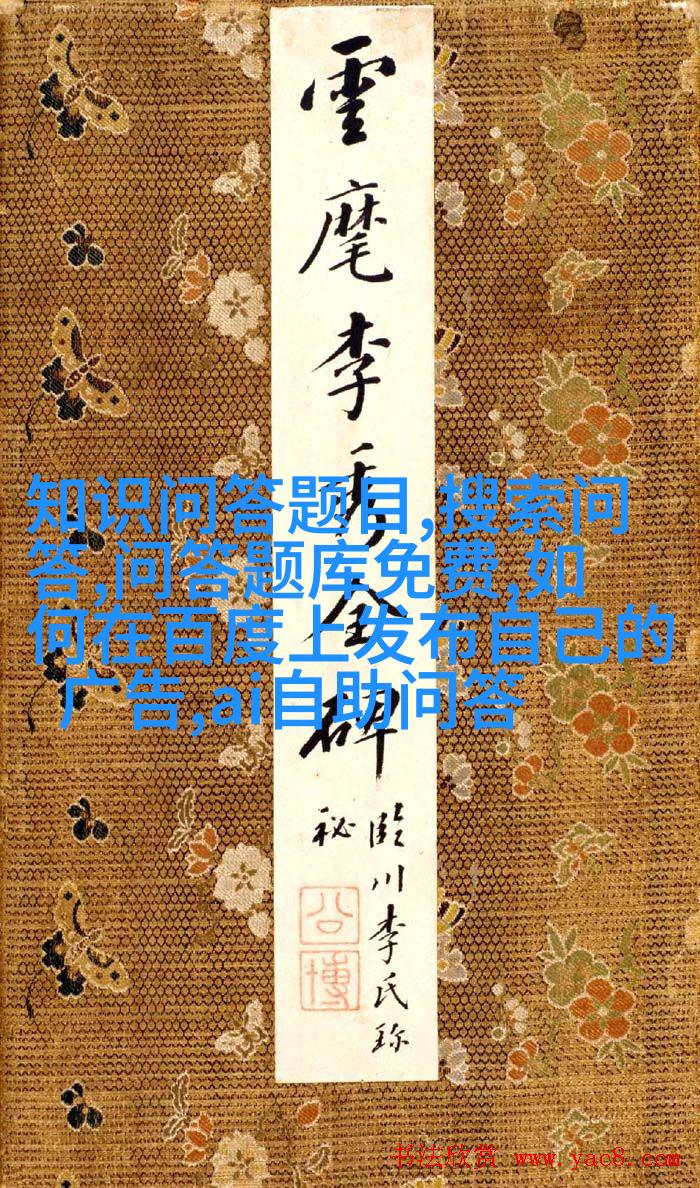 雲麾李秀全碑
臨川李氏珎
秘
公博
知识问答题目,搜索问
答,问答题库免费,如
何在百度上发布自己的
广告,ai自助问答
书法欣赏 www.yac8.com